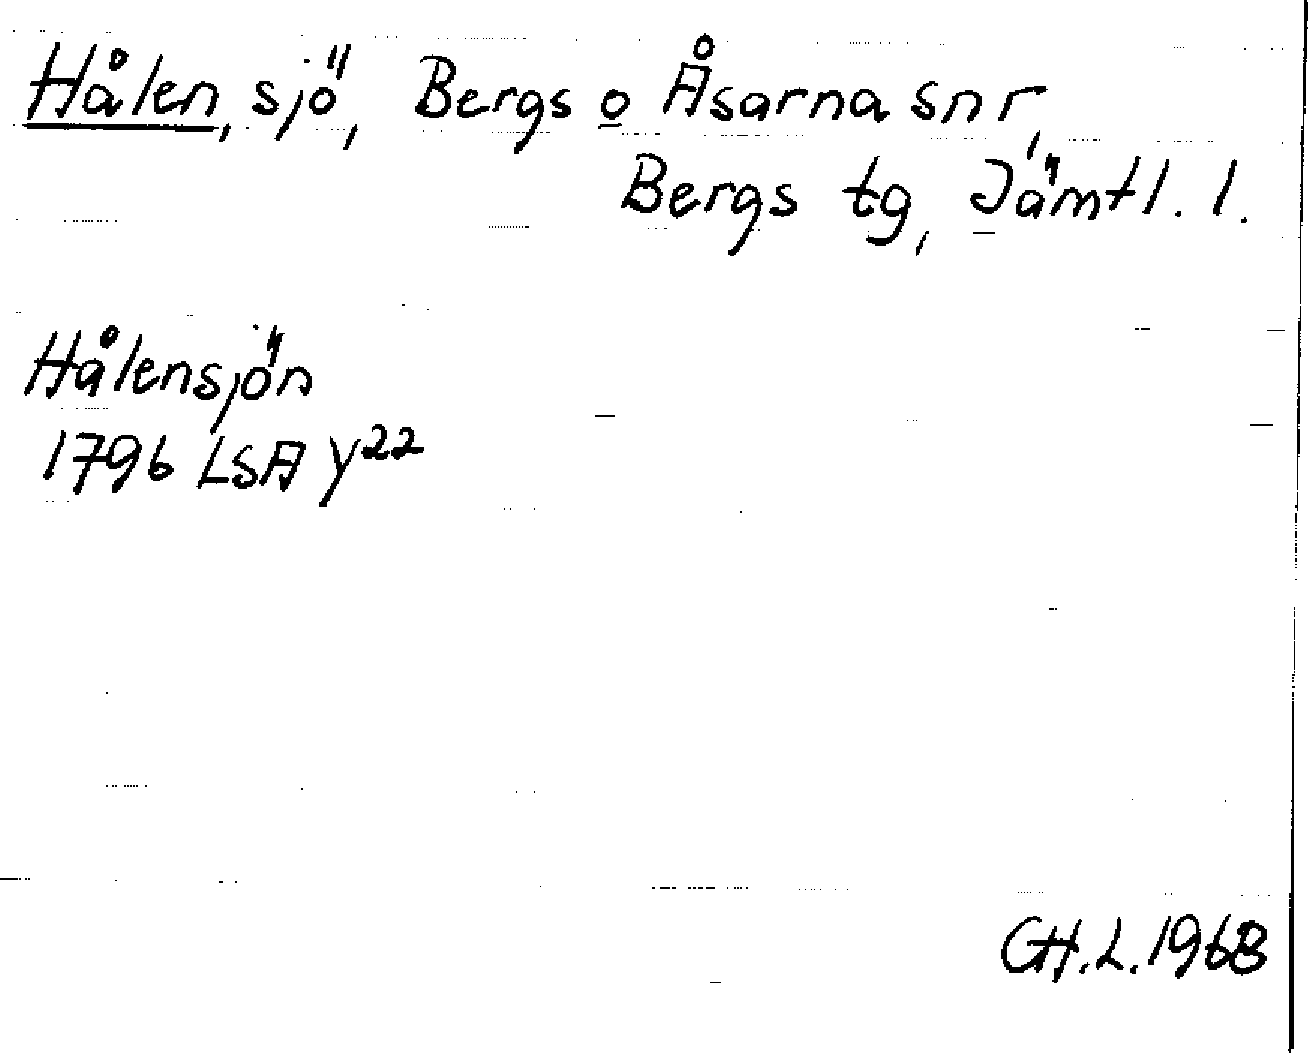 Hålen, sjö, Bergs o Åsarna snr,
Bergs tg, Jämtl. l.
Hålensjön
1796 LSA Y22
GH.L.1968